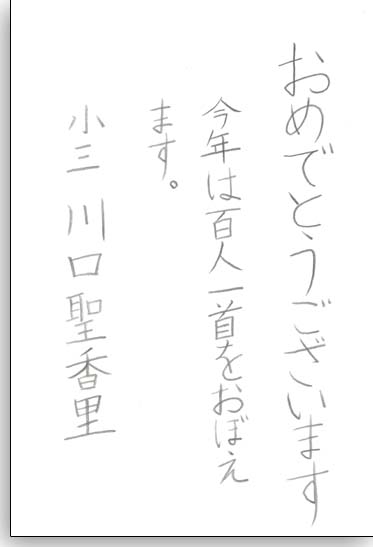 おめでとうございます
今年は百人一首をおぼえ
ます。
小三 川口聖香里